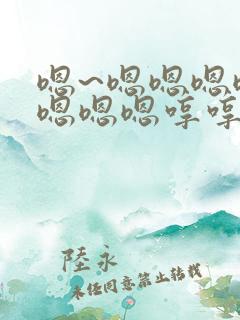 嗯~嗯嗯嗯
嗯嗯嗯哼哼
陸永
未经同意禁止转载